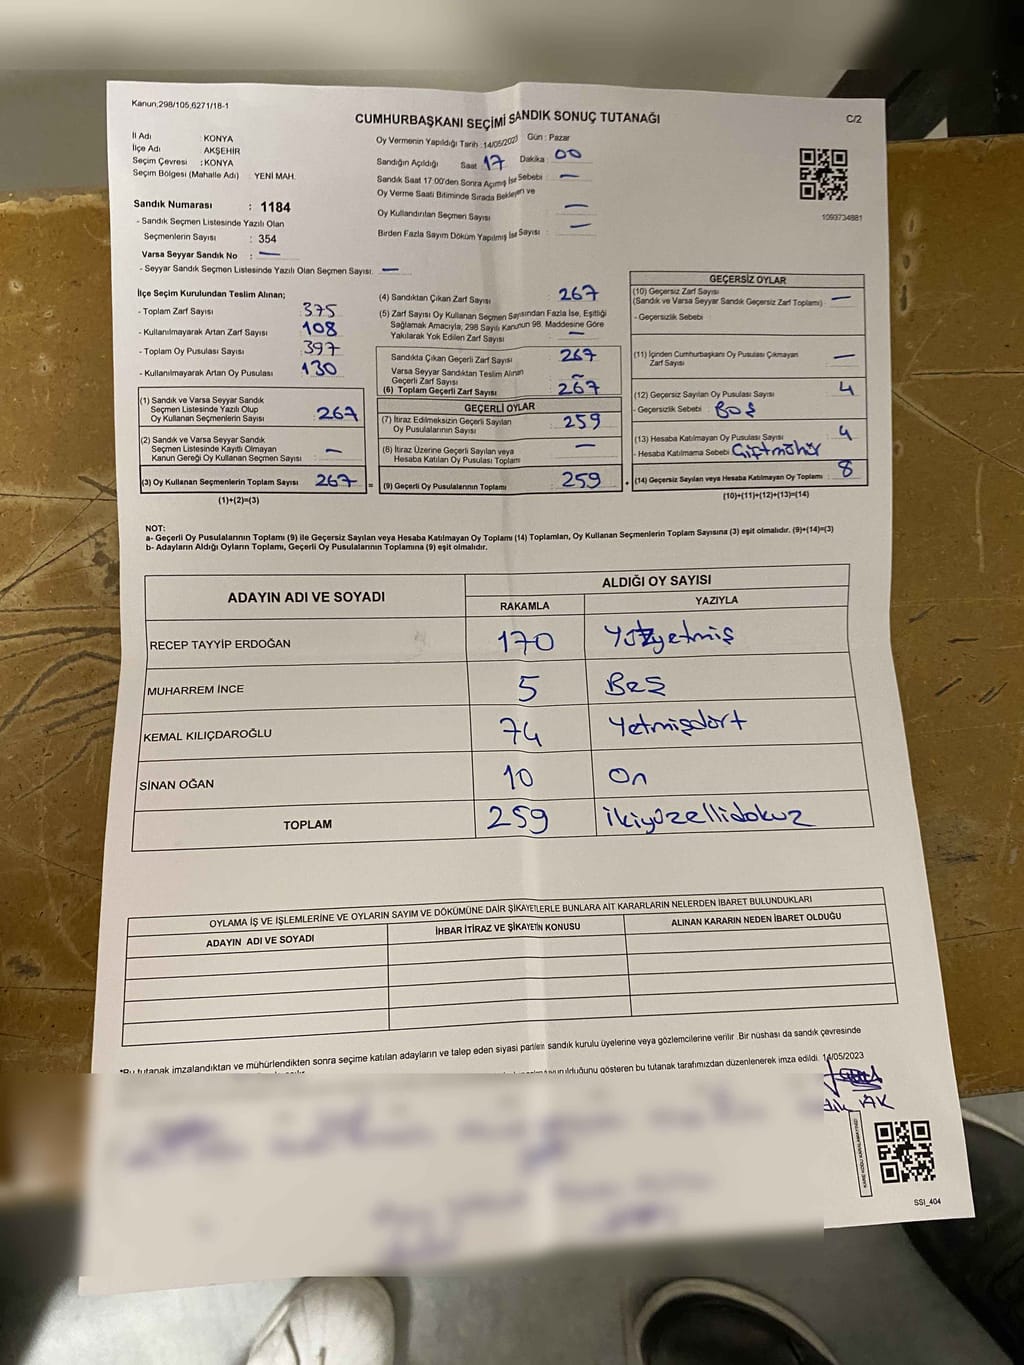 Kanun,298/105,6271/18-1
CUMHURBAŞKANI SEÇİMİ SANDIK SONUÇ TUTANAĞI
C/2
İl Adı : KONYA
İlçe Adı : AKŞEHİR
Seçim Çevresi : KONYA
Seçim Bölgesi (Mahalle Adı) : YENİ MAH.
Sandık Numarası : 1184
- Sandık Seçmen Listesinde Yazılı Olan
Seçmenlerin Sayısı : 354
Varsa Seyyar Sandık No : —
- Seyyar Sandık Seçmen Listesinde Yazılı Olan Seçmen Sayısı: —
Oy Vermenin Yapıldığı Tarih : 14/05/2023 Gün : Pazar
Sandığın Açıldığı Saat 17 Dakika : 00
Sandık Saat 17:00'den Sonra Açılmış İse Sebebi : —
Oy Verme Saati Bitiminde Sırada Bekleyen ve
Oy Kullandırılan Seçmen Sayısı —
Birden Fazla Sayım Döküm Yapılmış İse Sayısı : —
1093734881
İlçe Seçim Kurulundan Teslim Alınan;
- Toplam Zarf Sayısı : 375
- Kullanılmayarak Artan Zarf Sayısı : 108
- Toplam Oy Pusulası Sayısı : 397
- Kullanılmayarak Artan Oy Pusulası : 130
(1) Sandık ve Varsa Seyyar Sandık
Seçmen Listesinde Yazılı Olup
Oy Kullanan Seçmenlerin Sayısı : 267
(2) Sandık ve Varsa Seyyar Sandık
Seçmen Listesinde Kayıtlı Olmayan
Kanun Gereği Oy Kullanan Seçmen Sayısı : —
(3) Oy Kullanan Seçmenlerin Toplam Sayısı : 267 =
(1)+(2)=(3)
(4) Sandıktan Çıkan Zarf Sayısı : 267
(5) Zarf Sayısı Oy Kullanan Seçmen Sayısından Fazla İse, Eşitliği
Sağlamak Amacıyla, 298 Sayılı Kanunun 98. Maddesine Göre
Yakılarak Yok Edilen Zarf Sayısı : —
Sandıkta Çıkan Geçerli Zarf Sayısı : 267
Varsa Seyyar Sandıktan Teslim Alınan
Geçerli Zarf Sayısı : —
(6) Toplam Geçerli Zarf Sayısı : 267
GEÇERLİ OYLAR
(7) İtiraz Edilmeksizin Geçerli Sayılan
Oy Pusulalarının Sayısı : 259
(8) İtiraz Üzerine Geçerli Sayılan veya
Hesaba Katılan Oy Pusulası Toplamı : —
(9) Geçerli Oy Pusulalarının Toplamı : 259 +
GEÇERSİZ OYLAR
(10) Geçersiz Zarf Sayısı
(Sandık ve Varsa Seyyar Sandık Geçersiz Zarf Toplamı) : —
- Geçersizlik Sebebi :
(11) İçinden Cumhurbaşkanı Oy Pusulası Çıkmayan
Zarf Sayısı : —
(12) Geçersiz Sayılan Oy Pusulası Sayısı : 4
- Geçersizlik Sebebi : Boş
(13) Hesaba Katılmayan Oy Pusulası Sayısı : 4
- Hesaba Katılmama Sebebi : Çiftmühür
(14) Geçersiz Sayılan veya Hesaba Katılmayan Oy Toplamı : 8
(10)+(11)+(12)+(13)=(14)
NOT:
a- Geçerli Oy Pusulalarının Toplamı (9) ile Geçersiz Sayılan veya Hesaba Katılmayan Oy Toplamı (14) Toplamları, Oy Kullanan Seçmenlerin Toplam Sayısına (3) eşit olmalıdır. (9)+(14)=(3)
b- Adayların Aldığı Oyların Toplamı, Geçerli Oy Pusulalarının Toplamına (9) eşit olmalıdır.
ADAYIN ADI VE SOYADI ALDIĞI OY SAYISI
RAKAMLA YAZIYLA
RECEP TAYYİP ERDOĞAN 170 Yüzyetmiş
MUHARREM İNCE 5 Beş
KEMAL KILIÇDAROĞLU 74 Yetmişdört
SİNAN OĞAN 10 On
TOPLAM 259 ikiyüzellidokuz
OYLAMA İŞ VE İŞLEMLERİNE VE OYLARIN SAYIM VE DÖKÜMÜNE DAİR ŞİKAYETLERLE BUNLARA AİT KARARLARIN NELERDEN İBARET BULUNDUKLARI
ADAYIN ADI VE SOYADI İHBAR İTİRAZ VE ŞİKAYETİN KONUSU ALINAN KARARIN NEDEN İBARET OLDUĞU
*Bu tutanak imzalandıktan ve mühürlendikten sonra seçime katılan adayların ve talep eden siyasi partilerin sandık kurulu üyelerine veya gözlemcilerine verilir. Bir nüshası da sandık çevresinde
gösteren bu tutanak tarafımızdan düzenlenerek imza edildi. 14/05/2023
SSI_404